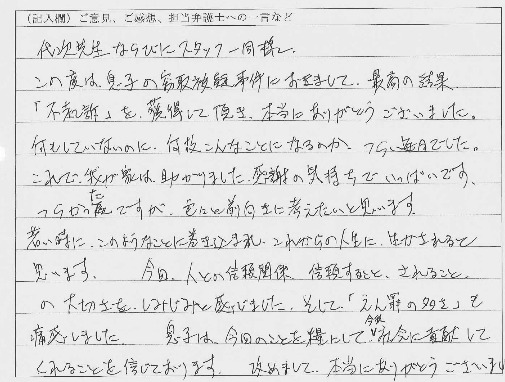 (記入欄)ご意見、ご感想、担当弁護士への一言など
代次先生ならびにスタッフ一同様へ
この度は息子の窃取被疑事件におきまして、最高の結果
「不起訴」を、獲得して頂き、本当にありがとうございました。
何もしていないのに、何故こんなことになるのか、つらい毎日でした。
これで、我が家は助かりました。感謝の気持ちでいっぱいです。
つらかった ですが、色々と前向きに考えたいと思います
若い時に、このようなことに巻き込まれ、これからの人生に、生かされると
思います。 今回、人との信頼関係、信頼すること、されること、
の大切さを、しみじみと感じました。そして、「えん罪の多さ」も
痛感しました 息子は、今回のことを糧にして、今後 社会に貢献して
くれることを信じております。 改めまして、本当にありがとうございました